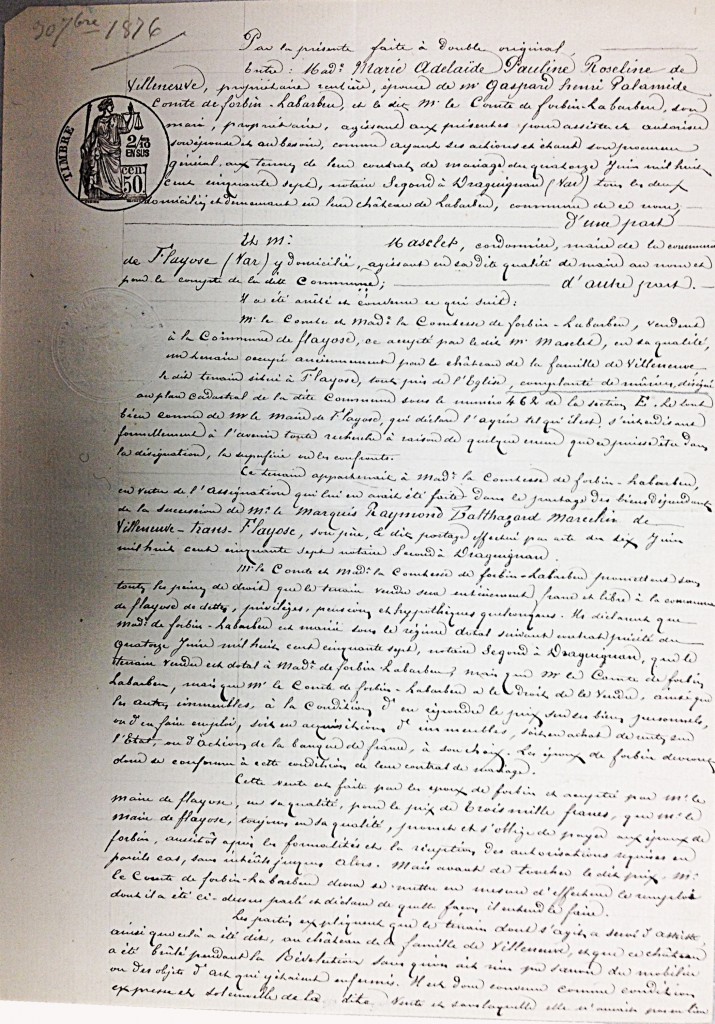 30 7bre 1876
Par la présente faite à double original,
Entre : Made Marie Adelaïde Pauline Roseline de
Villeneuve, propriétaire rentière, épouse de Mr Gaspard henri Palamède
Comte de forbin-Labarben, et le dit Mr le Comte de forbin-Labarben, son
mari, propriétaire, agissant aux présentes pour assister et autoriser
son épouse et au besoin, comme ayant ses actions et étant son procureur
général, aux termes de leur contrat de mariage du quatorze Juin mil huit
cent cinquante sept, notaire Segond à Draguignan (Var) tous les deux
domiciliés et demeurant en leur château de Labarben, commune de ce nom;
d'une part
TIMBRE
2/10
EN SUS
50 cen
Et Mr Masclet, cordonnier, maire de la commune
de Flayosc (Var) y domicilié, agissant en sa dite qualité de maire au nom et
pour le compte de la dite Commune; d'autre part.
Il a été arrêté et convenu ce qui suit :
Mr le Comte et Made la Comtesse de forbin-Labarben, vendent
à la Commune de flayosc, ce accepté par le dit Mr Masclet, en sa qualité,
un terrain occupé anciennement par le château de la famille de Villeneuve
le dit terrain situé à Flayosc, tout près de l'Eglise, complanté de mûriers, désigné
au plan cadastral de la dite Commune sous le numéro 462 de la section E. Le tout
bien connu de Mr le Maire de Flayosc, qui déclare l'agréer tel qu'il est, s'interdisant
formellement à l'avenir toute recherche à raison de quelque erreur que ce puisse être dans
la désignation, la superficie ou les confronts.
Ce terrain appartenait à Made la Comtesse de forbin-Labarben,
en vertu de l'assignation qui lui en avait été faite dans le partage des biens dépendants
de la succession de Mr le Marquis Raymond Balthazard de
Villeneuve-trans-Flayosc, son père, le dit partage effectué par acte du dix Juin
mil huit cent cinquante sept notaire Segond à Draguignan.
Mr le Comte et Made la Comtesse de forbin-Labarben promettent sous
toutes les peines de droit que le terrain vendu sera entièrement franc et libre à la commune
de flayosc de dettes, privilèges, pensions et hypothèques quelconques. Ils déclarent que
Made de forbin-Labarben est mariée sous le régime dotal suivant contrat précité du
quatorze Juin mil huit cent cinquante sept, notaire Segond à Draguignan, que le
terrain vendu est dotal à Made de forbin-Labarben, mais que Mr le Comte de forbin
Labarben, mais que Mr le Comte de forbin-Labarben a le droit de le vendre, ainsi que
les autres immeubles, à la condition d'en répondre le prix sur ses biens personnels,
ou d'en faire emploi, soit en acquisitions d'immeubles, soit en achat de rentes sur
l'Etat, ou d'actions de la banque de france, à son choix. Les époux de forbin devront
donc se conformer à cette condition de leur contrat de mariage.
Cette vente est faite par les époux de forbin et acceptée par Mr le
maire de flayosc, en sa qualité, pour le prix de trois mille francs, que Mr le
maire de flayosc, toujours en sa qualité, promet et s'oblige de payer aux époux de
forbin, aussitôt après les formalités et la réception des autorisations requises en
pareils cas, sans intérêts jusques alors. Mais avant de toucher le dit prix, Mr
le Comte de forbin-Labarben devra se mettre en mesure d'effectuer le remploi
dont il a été ci-dessus parlé et déclarer de quelle façon il entend le faire.
Les parties expliquent que le terrain dont s'agit, a servi d'assiette,
ainsi que celà a été dit, au château de la famille de Villeneuve, et que ce château
a été brûlé pendant la Révolution sans qu'on ait rien pu sauver du mobilier
ou des objets d'art qui y étaient enfermés. Il est donc convenu comme condition
expresse et solennelle de la dite vente et sans laquelle elle n'aurait pas eu lieu